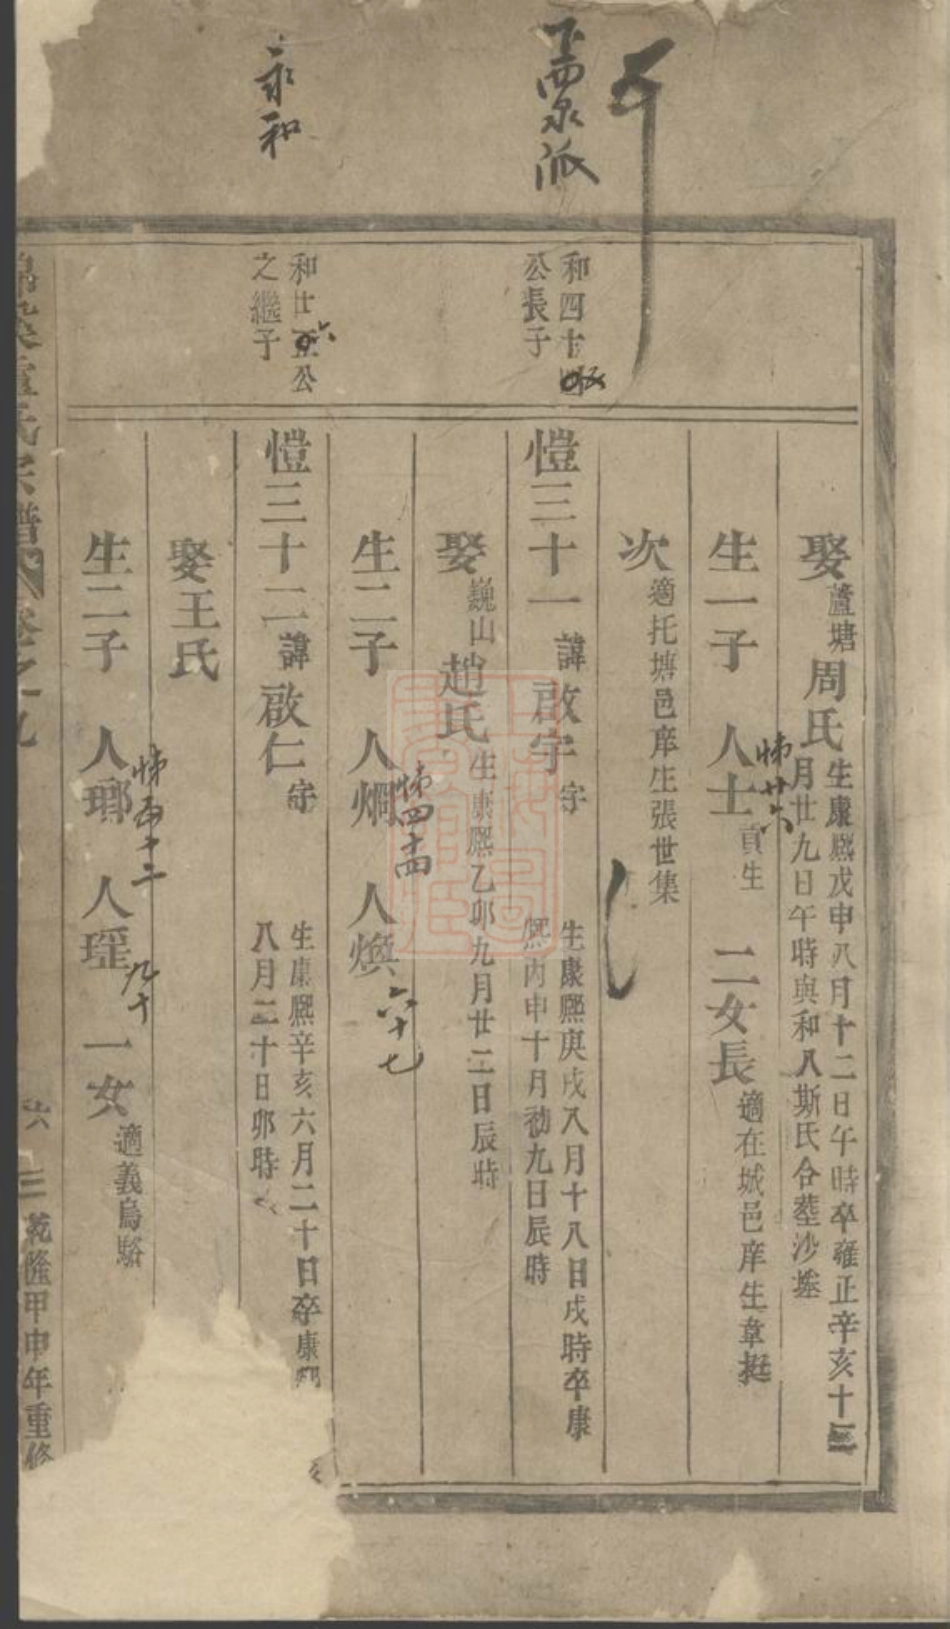 派
永和
娶蘆塘周氏生康熙戊申八月十二日午時卒雍正辛亥十
月廿九日午時與和八斯氏合塟沙塝
生一子 人士貢生 二女長適在城邑庠生韋挺
悌廿六
次適托塘邑庠生張世集
和四十
公長子
愷三十一諱啟宇字 生康熙庚戌八月十八日戌時卒康
熙丙申十月初九日辰時
娶巍山趙氏生康熙乙卯九月廿二日辰時
生二子 人烱 人煥
悌四十四 六十七
和廿六公
之繼子
愷三十二諱啟仁字 生康熙辛亥六月二十日卒康熙
八月二十日卯時
娶王氏
生二子 人瑯 人瑶 一女適義烏駱
悌五十二 九十
盧氏宗譜 卷之十九 六 三 乾隆甲申年重修